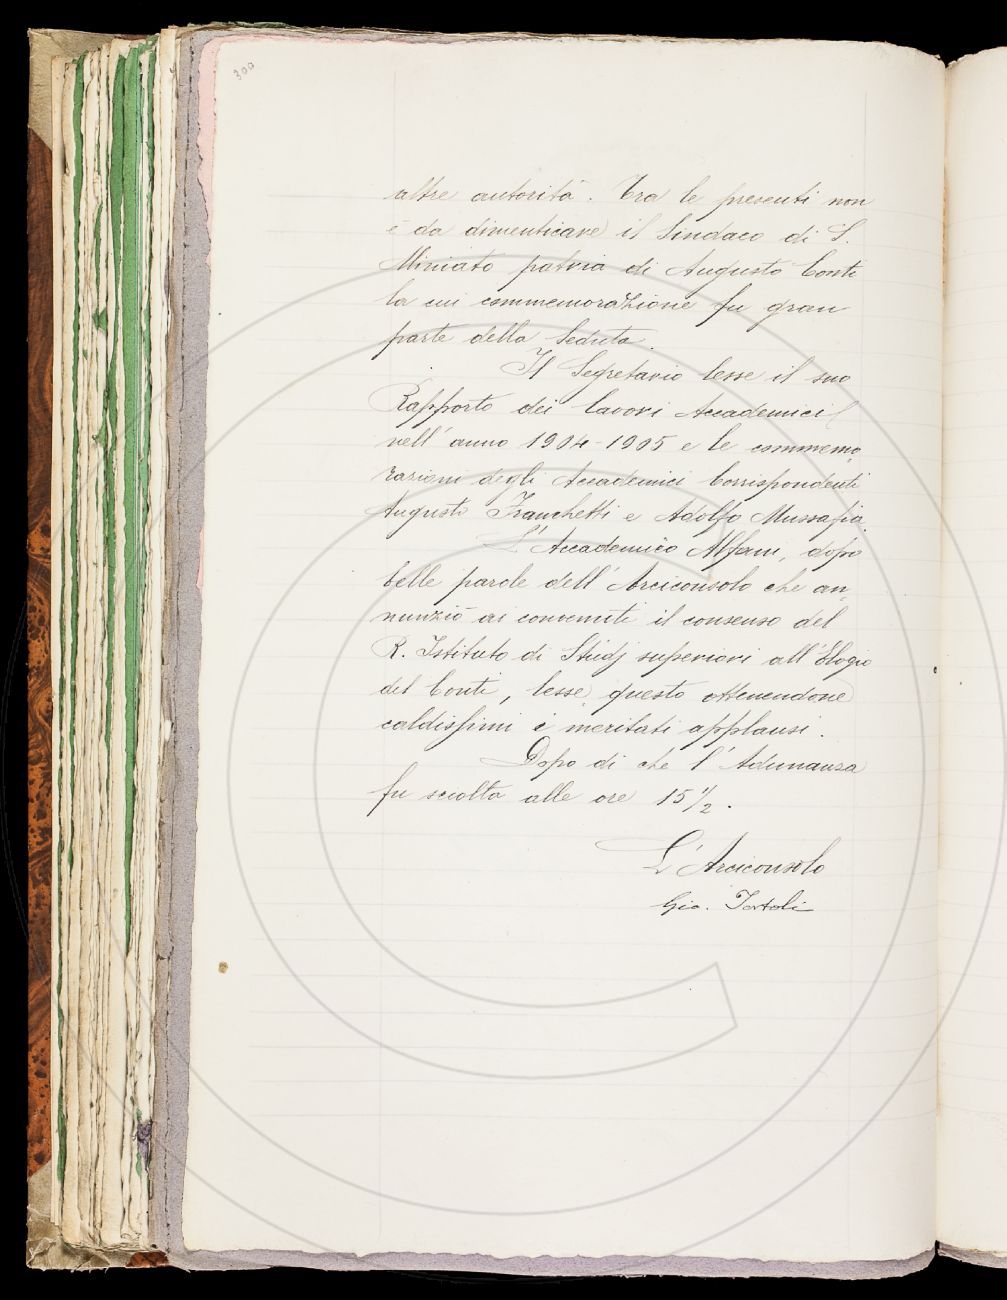 300
altre autorità. Tra le presenti non
è da dimenticare il Sindaco di S.
Miniato patria di Augusto Conti
la cui commemorazione fu gran
parte della Seduta.
Il Segretario lesse il suo
Rapporto dei lavori Accademici
nell'anno 1904-1905 e le commemo
razioni degli Accademici Corrispondenti
Augusto Franchetti e Adolfo Mussafia.
L'Accademico Alfani, dopo
belle parole dell'Arciconsolo che an
nunziò ai convenuti il consenso del
R. Istituto di Studj superiori all'Elogio
del Conti, lesse questo ottenendone
caldissimi e meritati applausi.
Dopo di che l'Adunanza
fu sciolta alle ore 15 1/2.
L'Arciconsolo
Gio. Tortoli